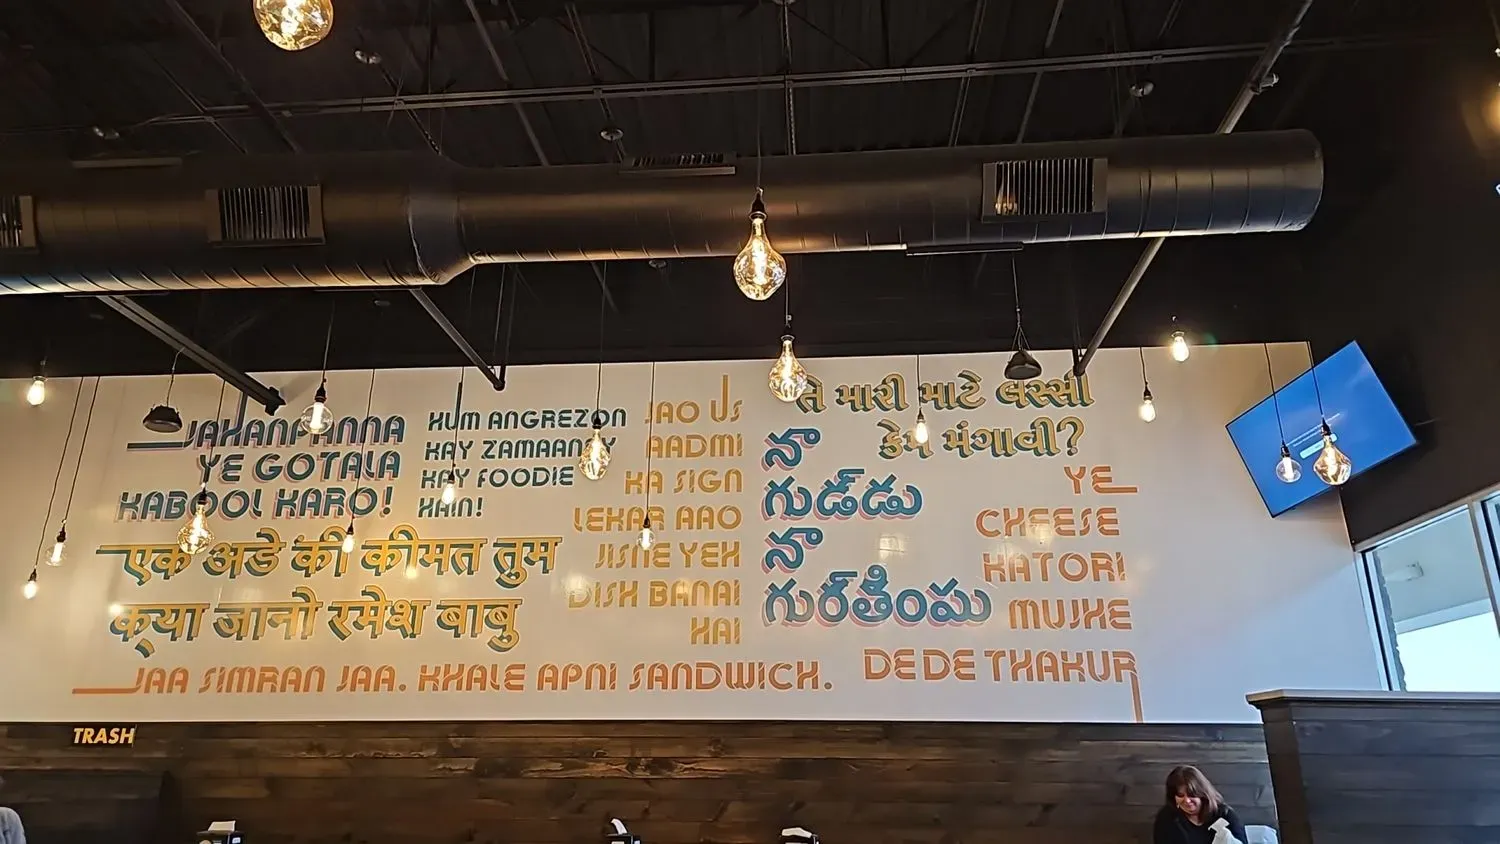 JAHANPANNA
YE GOTALA
KABOOL KARO!
HUM ANGREZON
KAY ZAMAANAY
KAY FOODIE
HAIN!
JAO US
AADMI
KA SIGN
LEKAR AAO
JISNE YEH
DISH BANAI
HAI
તે મારી માટે લસ્સી
કેમ મંગાવી?
నా
గుడ్డు
నా
గుర్తింపు
YE
CHEESE
KATORI
MUJHE
DE DE THAKUR
एक अंडे की कीमत तुम
क्या जानो रमेश बाबु
JAA SIMRAN JAA. KHALE APNI SANDWICH.
TRASH